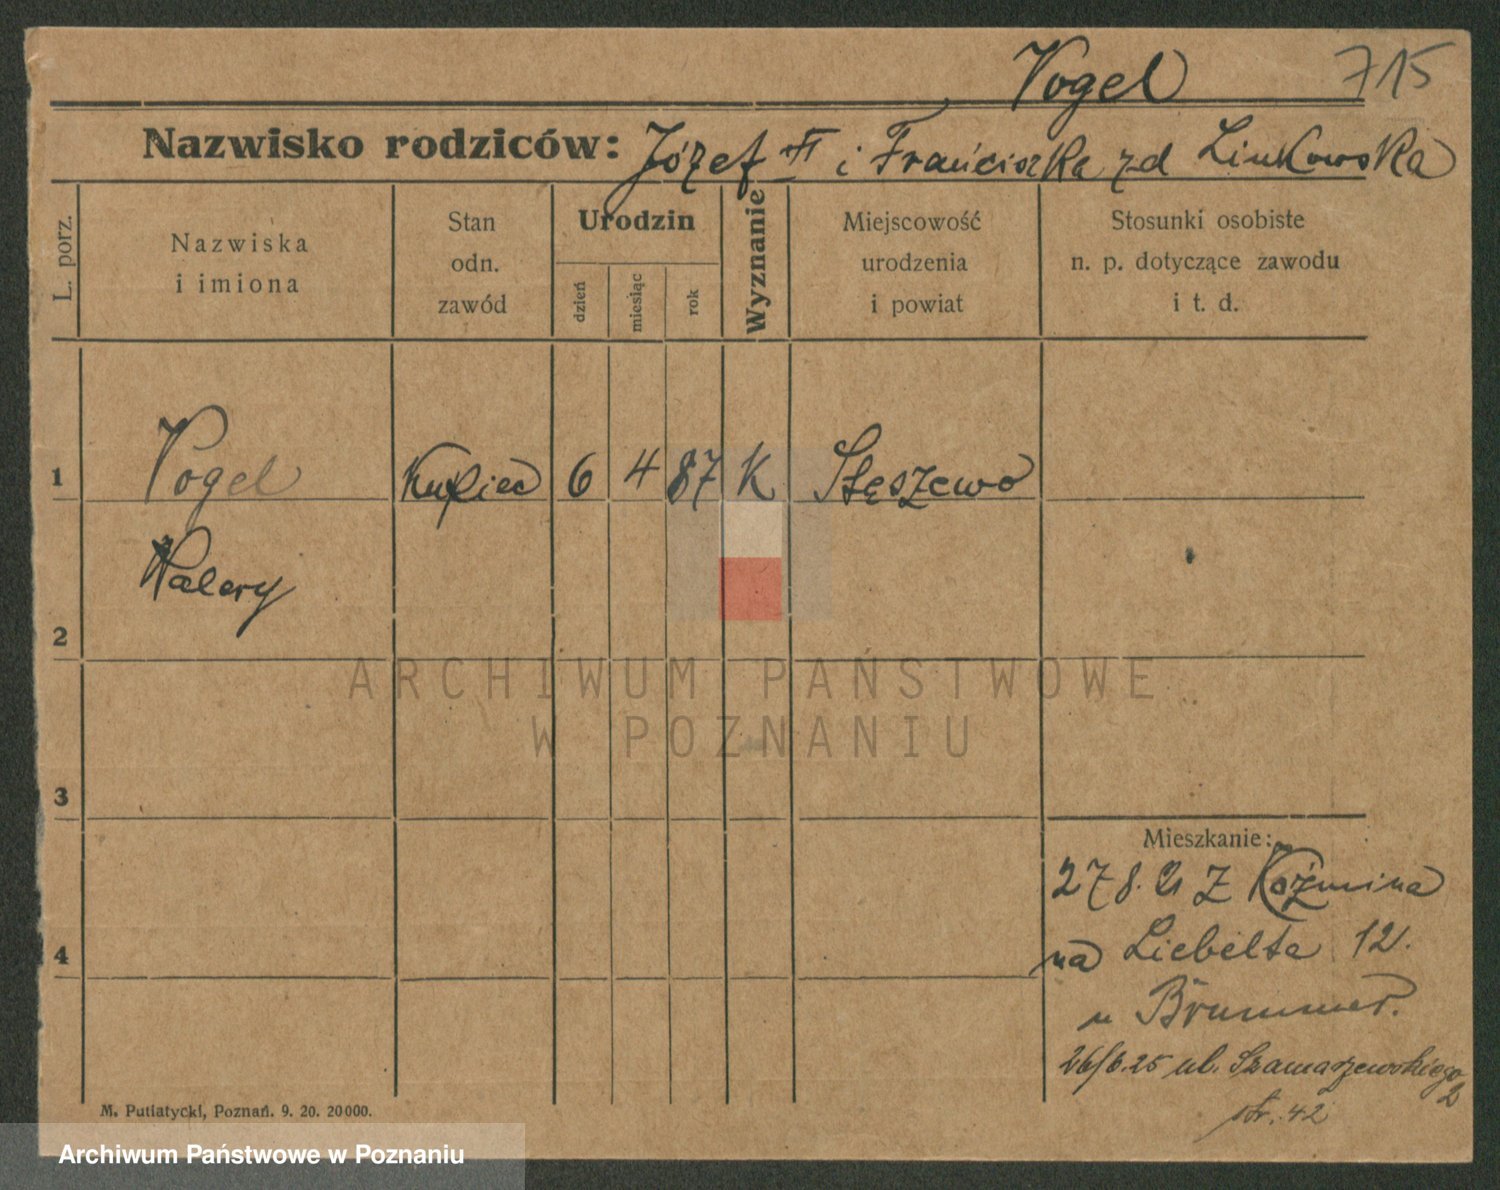 Vogel 715
Nazwisko rodziców: Józef II i Franciszka zd Linkowska
L. porz.
Nazwiska
i imiona
Stan
odn.
zawód
Urodzin
dzień
miesiąc
rok
Wyznanie
Miejscowość
urodzenia
i powiat
Stosunki osobiste
n. p. dotyczące zawodu
i t. d.
1 Vogel Kupiec 6 4 87 K Stęszewo
Walery
2
3
4
ARCHIWUM PAŃSTWOWE
W POZNANIU
Mieszkanie:
27 8. 21 Z Koźmina
na Liebelta 12.
u Brummer.
26/6.25 ul. Szamarzewskiego
2
str. 42
M. Putiatycki, Poznań. 9. 20. 20000.
Archiwum Państwowe w Poznaniu